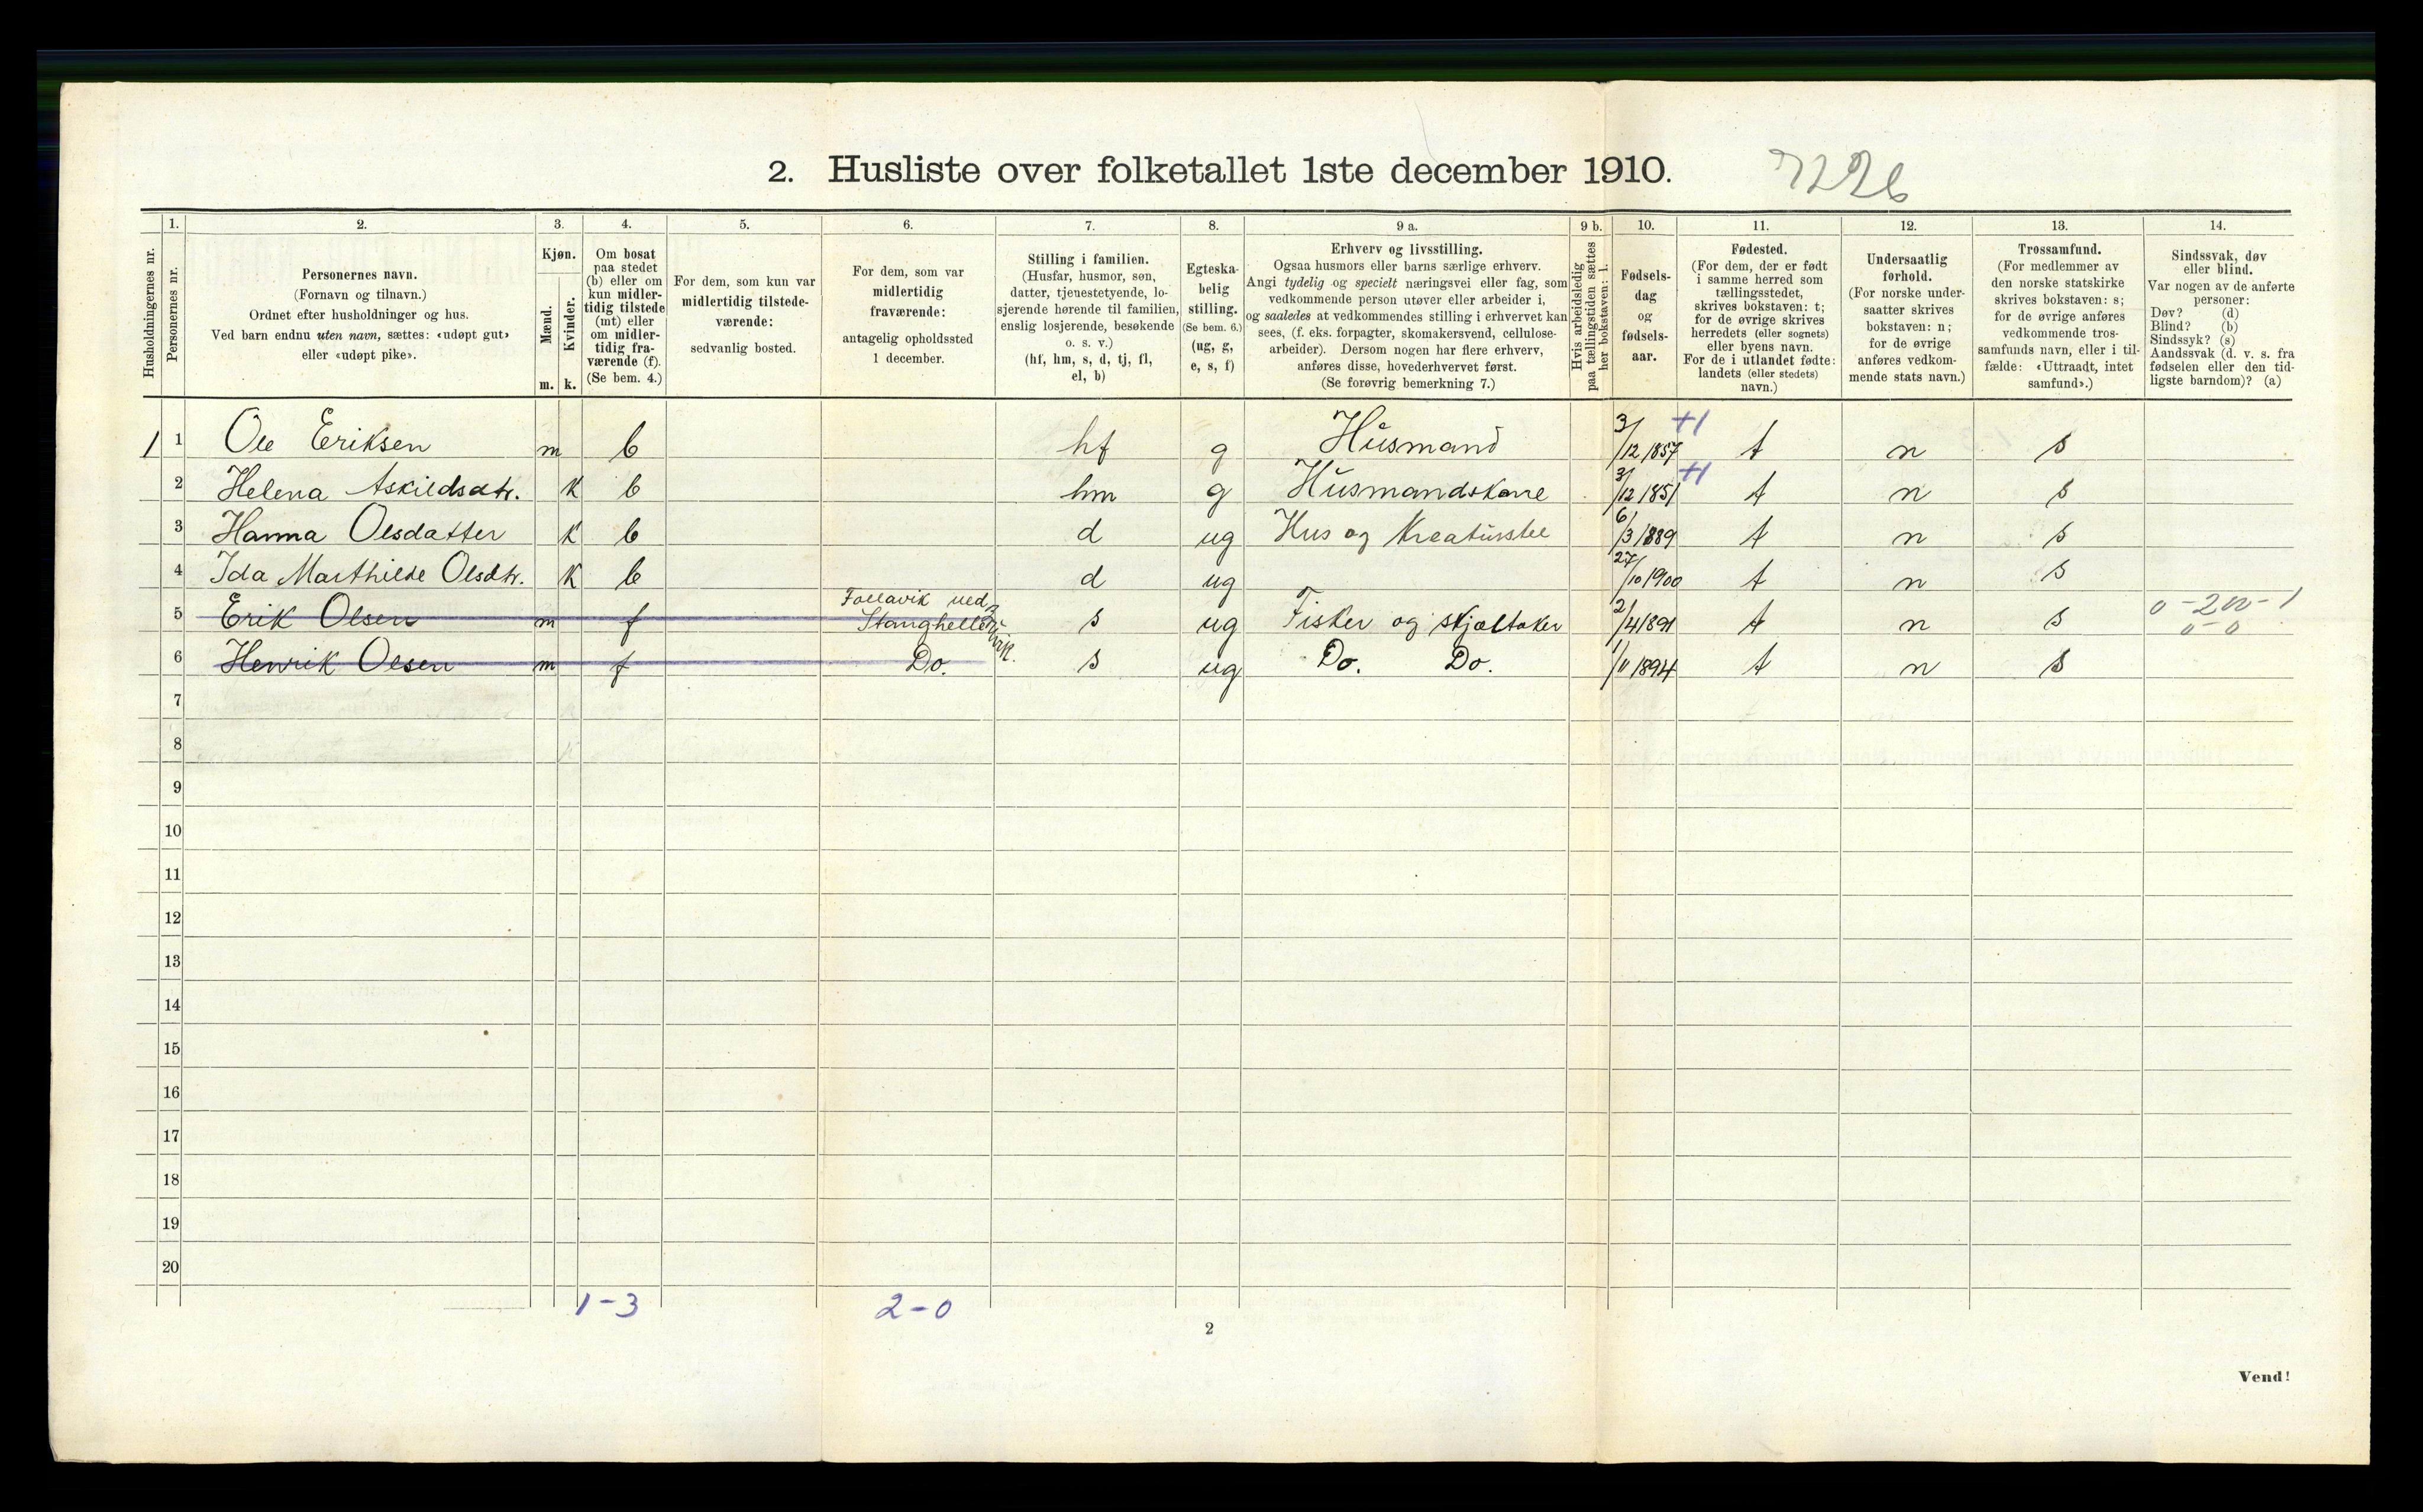 2. Husliste over folketallet 1ste december 1910.
7226
Husholdningernes nr.
1.
Personernes nr.
2.
Personernes navn.
(Fornavn og tilnavn.)
Ordnet efter husholdninger og hus.
Ved barn endnu uten navn, sættes: «udøpt gut»
eller «udøpt pike».
3.
Kjøn.
Mænd.
m.
Kvinder.
k.
4.
Om bosat
paa stedet
(b) eller om
kun midler-
tidig tilstede
(mt) eller
om midler-
tidig fra-
værende (f).
(Se bem. 4.)
5.
For dem, som kun var
midlertidig tilstede-
værende:
sedvanlig bosted.
6.
For dem, som var
midlertidig
fraværende:
antagelig opholdssted
1 december.
7.
Stilling i familien.
(Husfar, husmor, søn,
datter, tjenestetyende, lo-
sjerende hørende til familien,
enslig losjerende, besøkende
o. s. v.)
(hf, hm, s, d, tj, fl,
el, b)
8.
Egteska-
belig
stilling.
(Se bem. 6.)
(ug, g,
e, s, f)
9 a.
Erhverv og livsstilling.
Ogsaa husmors eller barns særlige erhverv.
Angi tydelig og specielt næringsvei eller fag, som
vedkommende person utøver eller arbeider i,
og saaledes at vedkommendes stilling i erhvervet kan
sees, (f. eks. forpagter, skomakersvend, cellulose-
arbeider). Dersom nogen har flere erhverv,
anføres disse, hovederhvervet først.
(Se forøvrig bemerkning 7.)
9 b.
Hvis arbeidsledig
paa tællingstiden sættes
her bokstaven: l.
10.
Fødsels-
dag
og
fødsels-
aar.
11.
Fødested.
(For dem, der er født
i samme herred som
tællingsstedet,
skrives bokstaven: t;
for de øvrige skrives
herredets (eller sognets)
eller byens navn.
For de i utlandet fødte:
landets (eller stedets)
navn.)
12.
Undersaatlig
forhold.
(For norske under-
saatter skrives
bokstaven: n;
for de øvrige
anføres vedkom-
mende stats navn.)
13.
Trossamfund.
(For medlemmer av
den norske statskirke
skrives bokstaven: s;
for de øvrige anføres
vedkommende tros-
samfunds navn, eller i til-
fælde: «Uttraadt, intet
samfund».)
14.
Sindssvak, døv
eller blind.
Var nogen av de anførte
personer:
Døv? (d)
Blind? (b)
Sindssyk? (s)
Aandssvak (d. v. s. fra
fødselen eller den tid-
ligste barndom)? (a)
1 1 Ole Eriksen m b hf g Husmand 3/12 1857 +1 t n s
2 Helena Askildsdtr. k b hm g Husmandskone 3/12 1851 +1 t n s
3 Hanna Olsdatter k b d ug Hus og Kreaturstel 6/3 1889 t n s
4 Ida Marthilde Olsdtr. k b d ug 27/10 1900 t n s
5 Erik Olsen m f Follavik ved Stanghelle s ug Fisker og skjæltaker 2/4 1891 t n s 0-200-1
0-0
6 Henrik Olsen m f Do. s ug Do. Do. 1/11 1894 t n s
7
8
9
10
11
12
13
14
15
16
17
18
19
20
1-3 2-0
2
Vend!